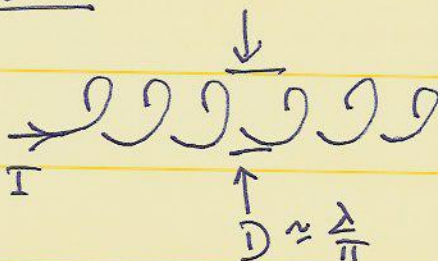 I
D ≈ λ/π